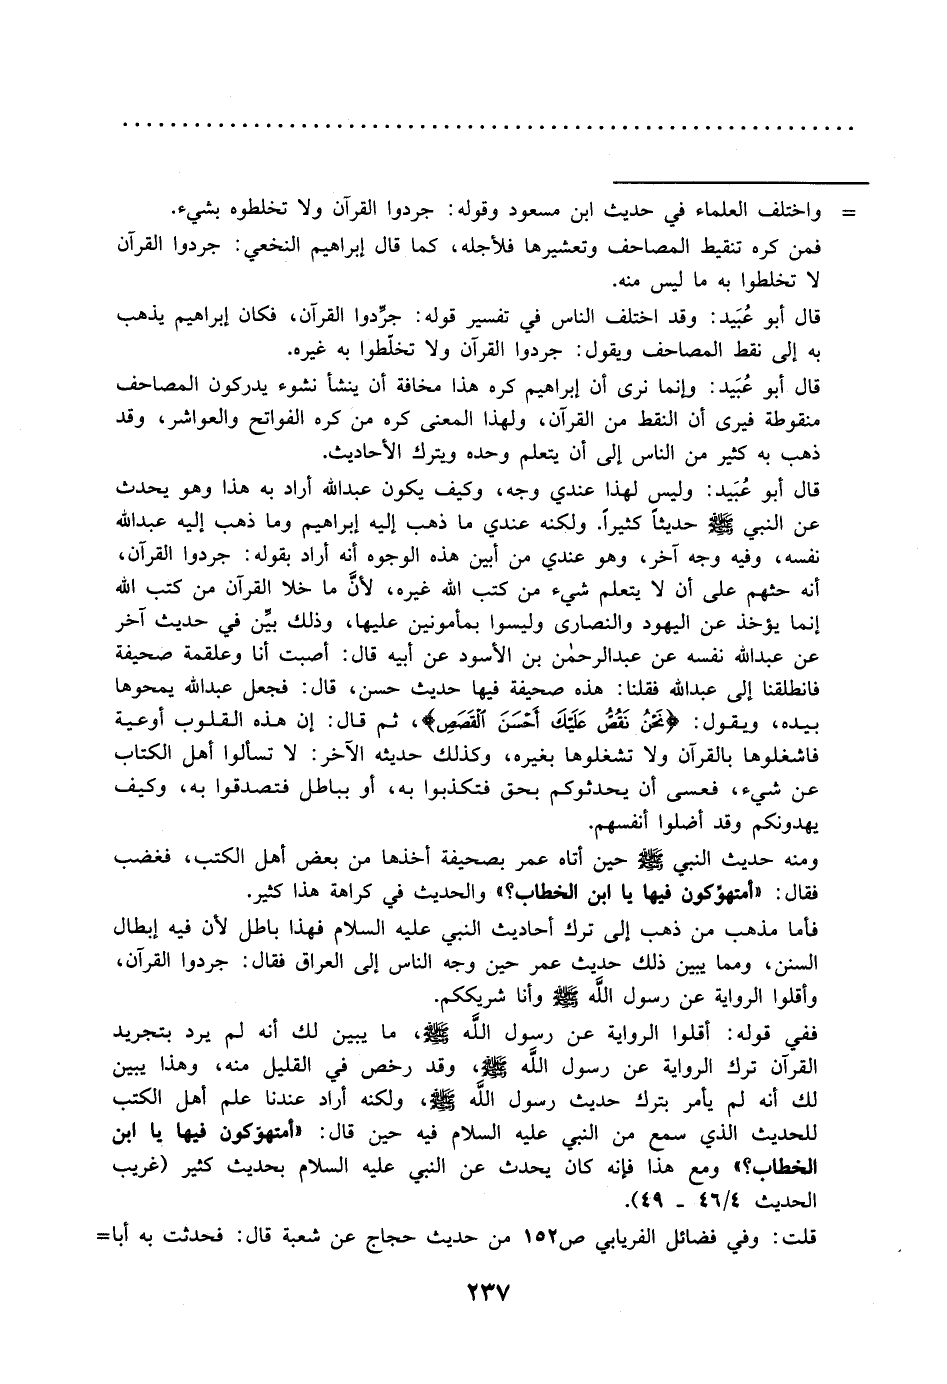 = واختلف العلماء في حديث ابن مسعود وقوله: جردوا القرآن ولا تخلطوه بشيء.
فمن كره تنقيط المصاحف وتعشيرها فلأجله، كما قال إبراهيم النخعي: جردوا القرآن
لا تخلطوا به ما ليس منه.
قال أبو عُبَيد: وقد اختلف الناس في تفسير قوله: جرِّدوا القرآن، فكان إبراهيم يذهب
به إلى نقط المصاحف ويقول: جردوا القرآن ولا تخلّطوا به غيره.
قال أبو عُبَيد: وإنما نرى أن إبراهيم كره هذا مخافة أن ينشأ نشوء يدركون المصاحف
منقوطة فيرى أن النقط من القرآن، ولهذا المعنى كره من كره الفواتح والعواشر، وقد
ذهب به كثير من الناس إلى أن يتعلم وحده ويترك الأحاديث.
قال أبو عُبَيد: وليس لهذا عندي وجه، وكيف يكون عبدالله أراد به هذا وهو يحدث
عن النبي ﷺ حديثاً كثيراً. ولكنه عندي ما ذهب إليه إبراهيم وما ذهب إليه عبدالله
نفسه، وفيه وجه آخر، وهو عندي من أبين هذه الوجوه أنه أراد بقوله: جردوا القرآن،
أنه حثهم على أن لا يتعلم شيء من كتب الله غيره، لأنَّ ما خلا القرآن من كتب الله
إنما يؤخذ عن اليهود والنصارى وليسوا بمأمونين عليها، وذلك بيِّن في حديث آخر
عن عبدالله نفسه عن عبدالرحمٰن بن الأسود عن أبيه قال: أصبت أنا وعلقمة صحيفة
فانطلقنا إلى عبدالله فقلنا: هذه صحيفة فيها حديث حسن، قال: فجعل عبدالله يمحوها
بيده، ويقول: ﴿نَحْنُ نَقُصُّ عَلَيْكَ أَحْسَنَ ٱلْقَصَصِ﴾، ثم قال: إن هذه القلوب أوعية
فاشغلوها بالقرآن ولا تشغلوها بغيره، وكذلك حديثه الآخر: لا تسألوا أهل الكتاب
عن شيء، فعسى أن يحدثوكم بحق فتكذبوا به، أو بباطل فتصدقوا به، وكيف
يهدونكم وقد أضلوا أنفسهم.
ومنه حديث النبي ﷺ حين أتاه عمر بصحيفة أخذها من بعض أهل الكتب، فغضب
فقال: «أمتهوّكون فيها يا ابن الخطاب؟» والحديث في كراهة هذا كثير.
فأما مذهب من ذهب إلى ترك أحاديث النبي عليه السلام فهذا باطل لأن فيه إبطال
السنن، ومما يبين ذلك حديث عمر حين وجه الناس إلى العراق فقال: جردوا القرآن،
وأقلوا الرواية عن رسول اللَّه ﷺ وأنا شريككم.
ففي قوله: أقلوا الرواية عن رسول اللَّه ﷺ، ما يبين لك أنه لم يرد بتجريد
القرآن ترك الرواية عن رسول اللَّه ﷺ، وقد رخص في القليل منه، وهذا يبين
لك أنه لم يأمر بترك حديث رسول اللَّه ﷺ، ولكنه أراد عندنا علم أهل الكتب
للحديث الذي سمع من النبي عليه السلام فيه حين قال: «أمتهوّكون فيها يا ابن
الخطاب؟» ومع هذا فإنه كان يحدث عن النبي عليه السلام بحديث كثير (غريب
الحديث ٤٦/٤ ـ ٤٩).
قلت: وفي فضائل الفريابي ص١٥٢ من حديث حجاج عن شعبة قال: فحدثت به أبا=
٢٣٧